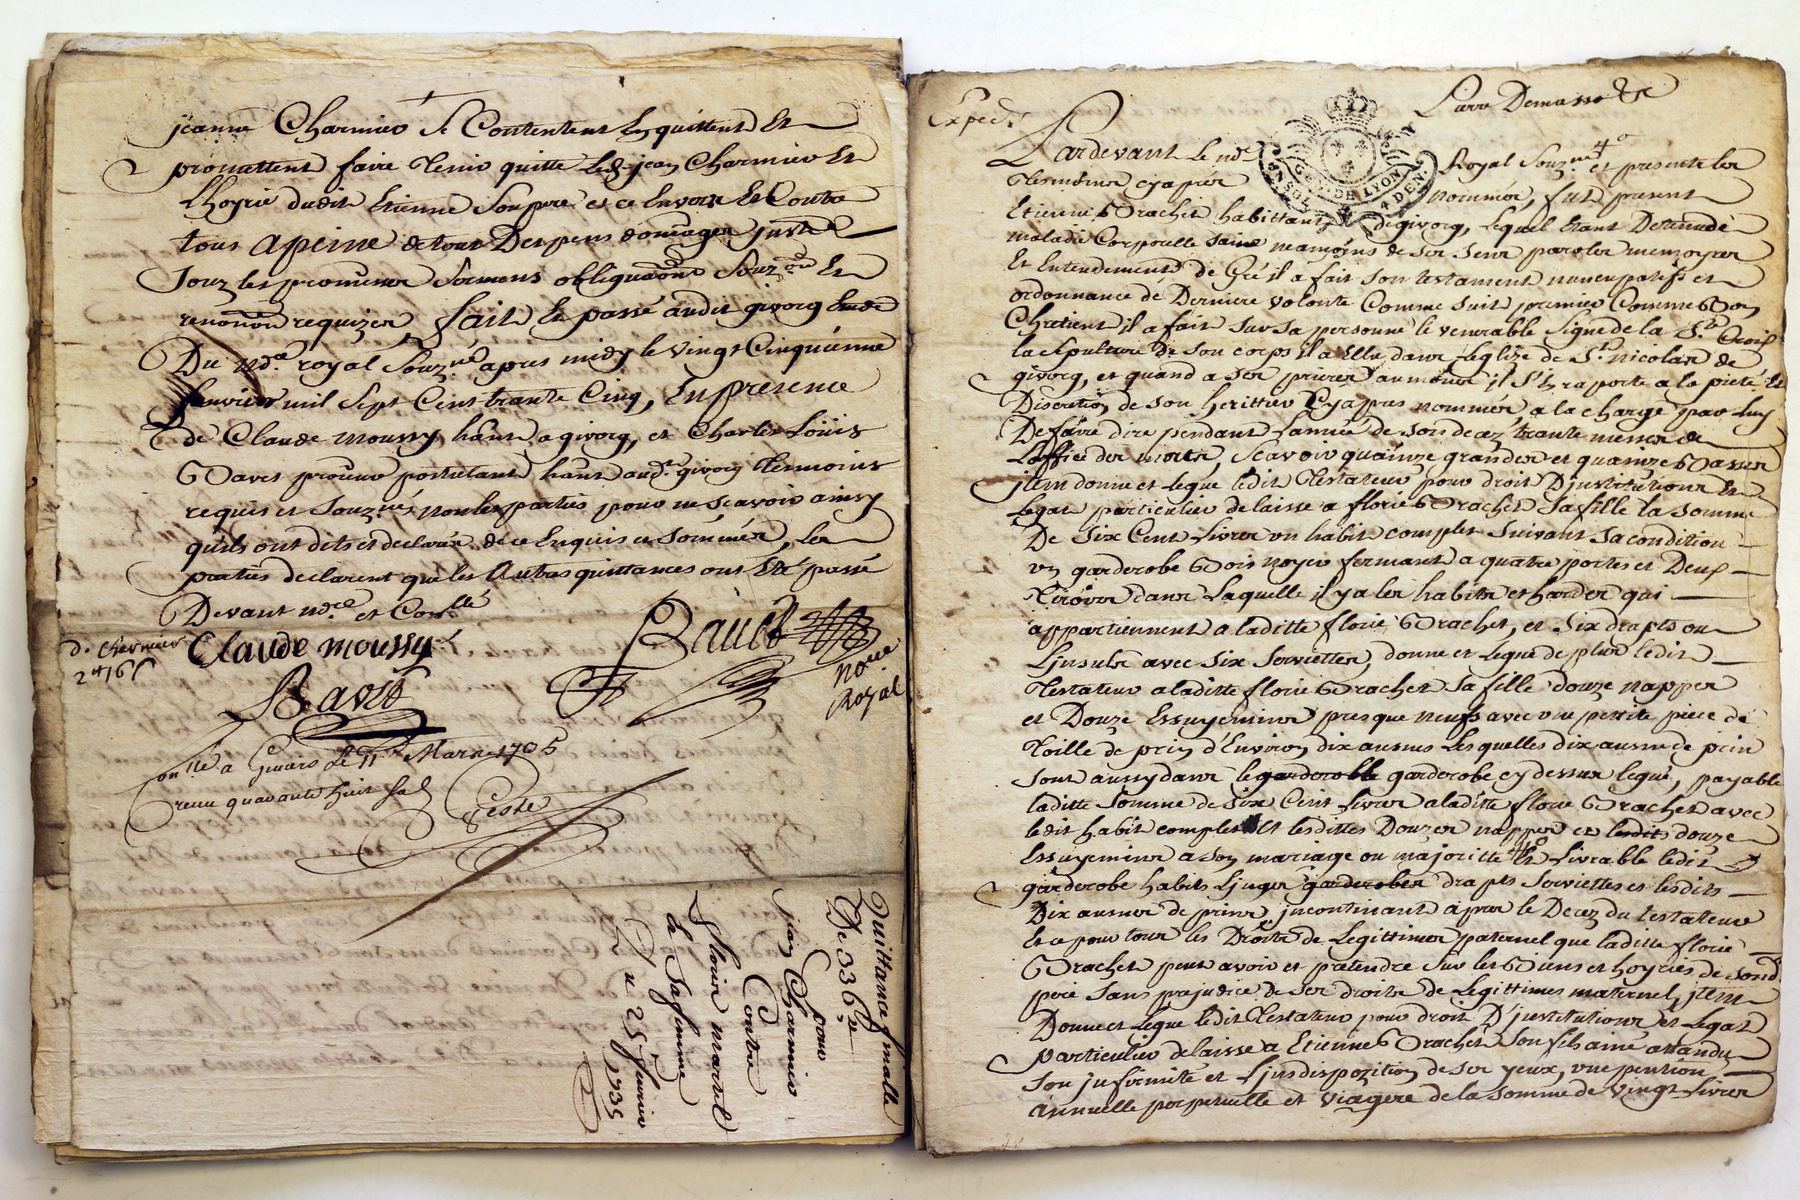 jeanne Charmier Se Contentent En quittent Et
promettent faire Tenir quitte Led. jean Charmier Et
L'hoyrie dudit Etienne Son pere et ce Envers Et Contre
tous a peine de tous Despens domages
Souz les promesses Sermens obligua͠ons Souz͠ons Et
renon͠on requizes, fait Et passé audit givorg Etude
Du no.re royal Souz.né apres midy le vingt Cinquiéme
fevrier mil Sept Cent trante Cinq, En presence
de Claude moussy hant a givorg, et Charles Loüis
Bavet hant aud. givorg Tesmoins
requis et Souz.nés non les parties pour ne Scavoir ainsy
qu'ils ont dits et declarés de ce Enquis et Sommés, Les
parties declarent que les Autres quittances ont Eté passé
Devant no.re et Con.llé
Claude moussy
Bavet
No.re Royal
Con.llé a Givors le 11 Mars 1735
recu quarante huit
Geste
Quittance finalle
De 336
pour
jean Charmier
Contre
fleurie martel
& Sa femme
Du 25 fevrier
1735
Exped.
Pardevant Le no.re Royal Souz.né et presents les
GEN. DE LYON
4 DEN.
Tesmoins cyapres nommés, fut present
Etienne Brachet habittant de givorg, Lequel Etant Detenu de
maladie Corporelle Saine neamoins de Ses Sens parolle memoyre
Et Entendement, de Gré il a fait Son testament nuncupatif et
ordonnance de Derniere volonté Comme Suit premier Comme Bon
Chretient il a fait Sur Sa personne le venerable Signe de la S.te Croix
la Sepulture de Son corps il a Ellu dans L'eglize de S.t nicolas de
givorg, et quand a Ses prieres aumones il S'En raporte a la pieté Et
Discretion de Son herittier Cyapres nommé a la charge par Luy
De faire dire pendant L'année de Son decez trante messes de
L'office des morts, Scavoir quainze grandes et quainze Basses
jtem donne et Legue ledit Testateur pour droit D'institution Et
Legat particulier delaisse a florie Brachet Sa fille la Somme
De Six Cent Livres un habit complet Suivant Sa condition
un garderobe Bois noyer fermant a quatre portes et Deux
Tiroirs dans Laquelle il y a les habits et hardes qui
appartiennent a laditte florie Brachet, et Six drapts ou
Linsuls avec Six Serviettes, donne et Legue de plus ledit
Testateur a laditte florie Brachet Sa fille douze nappes
et Douze Essuyemins presque neufs avec une pettite piece de
Toille de prin d'Environ dix aunes Lesquelles dix aune de prin
Sont aussy dans le garderobe garderobe cy dessus legué, payable
laditte Somme de Six Cent Livres a laditte florie Brachet avec
ledit habit complet Et lesdittes Douzes nappes et lesdits douze
Essuyemins a Son mariage ou majoritte Et Livrable ledit
garderobe habits Linges garderobes drapts Serviettes et lesdits
Dix aunes de prins, jncontinant apres le Decez du testateur
Et ce pour tous les Droits de Legittimes paternel que laditte florie
Brachet peut avoir et pretendre Sur les Biens et hoyries de Sond.
pere Sans prejudice de Ses droits de Legittimes maternel, jtem
Donne et Legue ledit Testateur pour droit D'jnstitution et Legat
particulier delaisse a Etienne Brachet Son fils ainé attandu
Son jnfirmité et L'jndispozition de Ses yeux, une pention
Annuelle perpetuelle et viagere de la Somme de vingt Livres